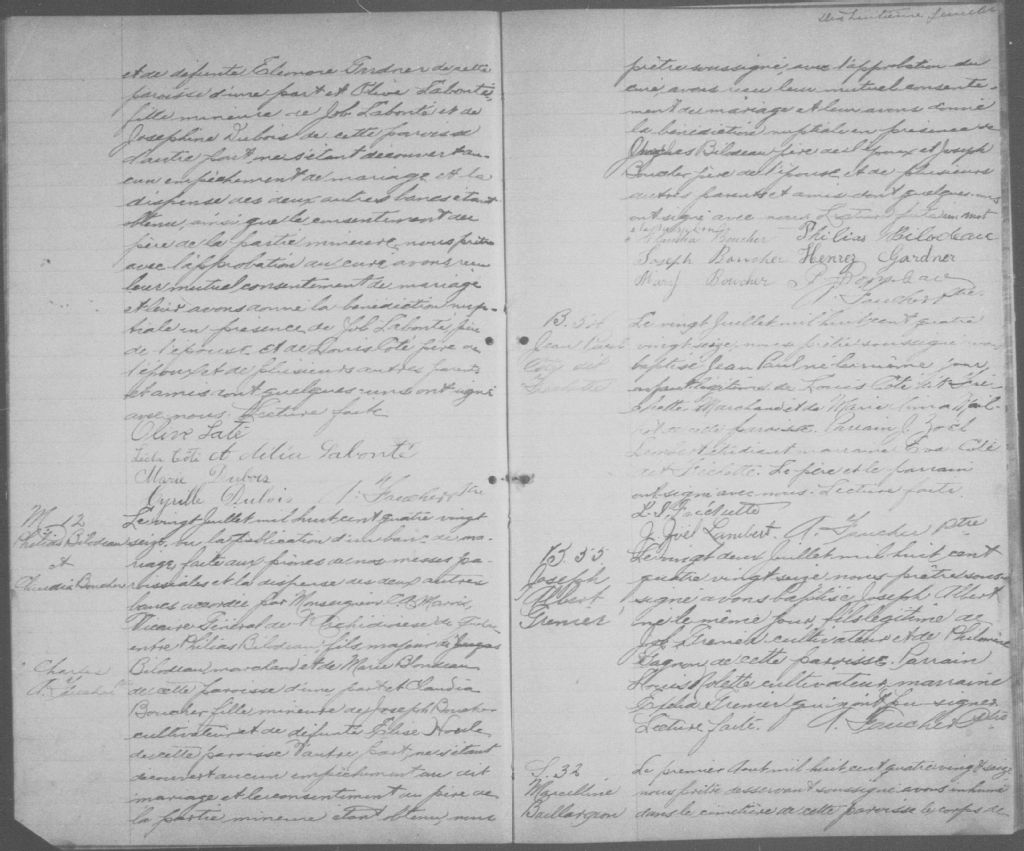 et de défunte Eleonore Gardner de cette
paroisse d'une part et Olive Labonté,
fille mineure de Job Labonté et de
Josephine Dubois de cette paroisse
d'autre part, ne s'étant découvert au-
cun empêchement de mariage et la
dispense des deux autres bancs étant
obtenu, ainsi que le consentement du
père de la partie mineure, nous prêtre
avec l'approbation du curé avons reçu
leur mutuel consentement de mariage
et leur avons donné la bénédiction nup-
tiale en présence de Job Labonté, père
de l'épouse et de Louis Coté père de
l'époux et de plusieurs autres parents
et amis dont quelques-uns ont signé
avec nous. Lecture faite
Olive
Coté et délia Labonté
Marie Dubois
Cyrille Dubois Faucher Ptre
M. 12
Philias Bilodeau
et
Claudia Boucher
Le vingt Juillet mil huit cent quatre vingt
seize, vu la publication d'un banc de ma-
riage faite aux prônes de nos messes pa-
roissiales et la dispense des deux autres
bancs accordée par Monseigneur C. A. Marois,
Vicaire Général de l'Archidiocèse de Québec
entre Philias Bilodeau, fils majeur de
Charles
Bilodeau marchand et de Marie Blondeau
de cette paroisse d'une part et Claudia
Boucher fille mineure de Joseph Boucher
cultivateur et de défunte Elise
de cette paroisse d'autre part, ne s'étant
découvert aucun empêchement au dit
mariage et le consentement du père de
la partie mineure étant obtenu nous
prêtre soussigné, avec l'approbation du
curé avons reçu leur mutuel consente-
ment de mariage et leur avons donné
la bénédiction nuptiale en présence de
Charles Bilodeau père de l'époux et Joseph
Boucher père de l'épouse et de plusieurs
autres parents et amis dont quelques-uns
ont signé avec nous Lecture faite un mot
Claudia Boucher Philias Bilodeau
Joseph Boucher Henry Gardner
Mary Boucher
Faucher Ptre.
B. 54
Jean Paul
Coté dit
Frichette
Le vingt Juillet mil huit cent quatre
vingt seize, nous prêtre soussigné avons
baptisé Jean Paul né le même jour,
enfant légitime de Louis Coté dit Fri-
chette Marchand et de Marie Anna
de cette paroisse. Parrain J. Joël
Lambert Etudiant marraine Eva Coté
dit Frichette. Le père et le parrain
ont signé avec nous. Lecture faite
L. J. Frichette
J. Joël Lambert. Faucher Ptre
B. 55
Joseph
Albert
Grenier
Le vingt deux Juillet mil huit cent
quatre vingt seize nous prêtre sous-
signé avons baptisé Joseph Albert
né le même jour, fils légitime de
Job Grenier cultivateur et de Philomène
Gagnon de cette paroisse. Parrain
Louis cultivateur, marraine
Grenier qui n'ont pu signer
Lecture faite. Faucher Ptre
S. 32
Marcelline
Baillargeon
Le premier Aout mil huit cent quatre vingt seize
nous prêtre desservant soussigné avons inhumé
dans le cimetière de cette paroisse le corps de